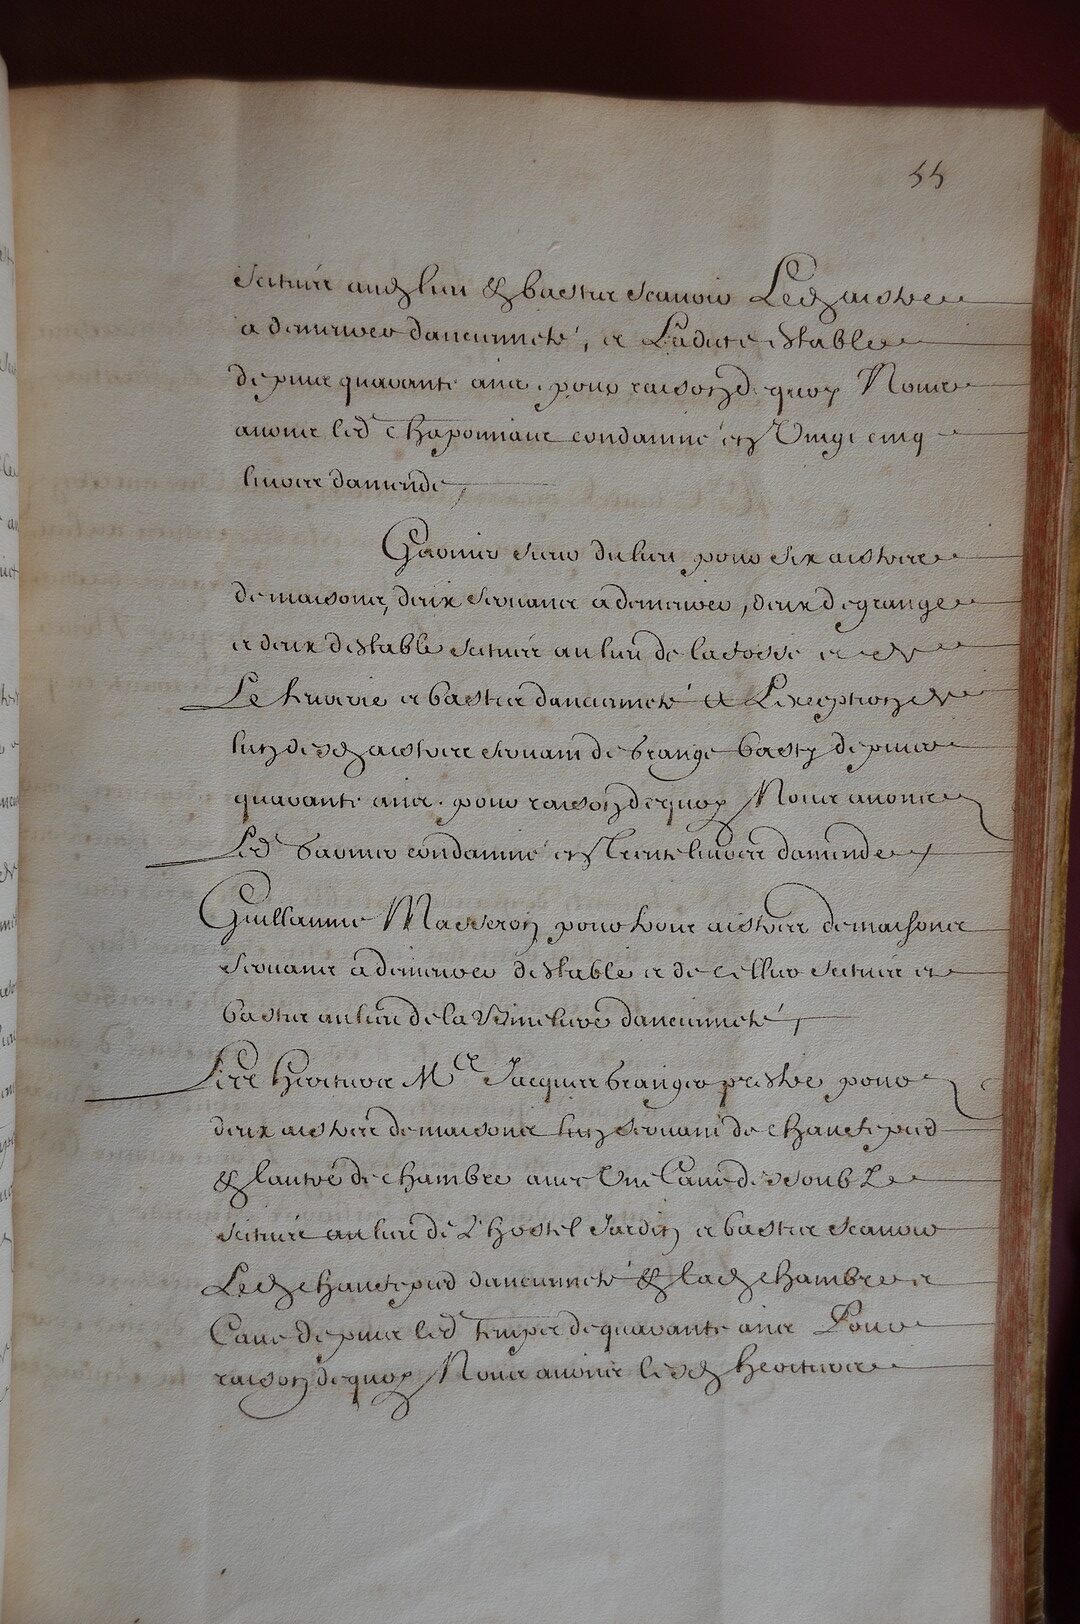 55
scituée aud lieu & bastie scauoir Led aistre
a demeurer dancienneté, et Ladite estable
depuis quarante ans. pour raison de quoy Nous
auons led Chaponniau condamné en Vingt cinq
liures damende,
sieur du lieu pour six aistres
de maisons, deux seruans a demeurer, deux de grange
et deux destable scituée au lieu de la fosse et de
et bastie dancienneté a Lexception de
lun desd aistres seruant de grange basty depuis
quarante ans. pour raison de quoy Nous auons
Led condamné en Trente liures damende,
Guillaume Masseron pour trois aistres de maisons
seruans a demeurer destable et de cellier scituée et
bastie au lieu de la dancienneté,
Les Heritiers Me Jacques Granger prestre pour
deux aistres de maisons lun seruant de Chauctepied
& lautre de chambre auec Vne Caue dessoubz Le
scituée au lieu de L'hostel Jardin et bastie scauoir
Led Chauctepied dancienneté & lad Chambre et
Caue depuis led temps de quarante ans Pour
raison de quoy Nous auons lesd Heritiers